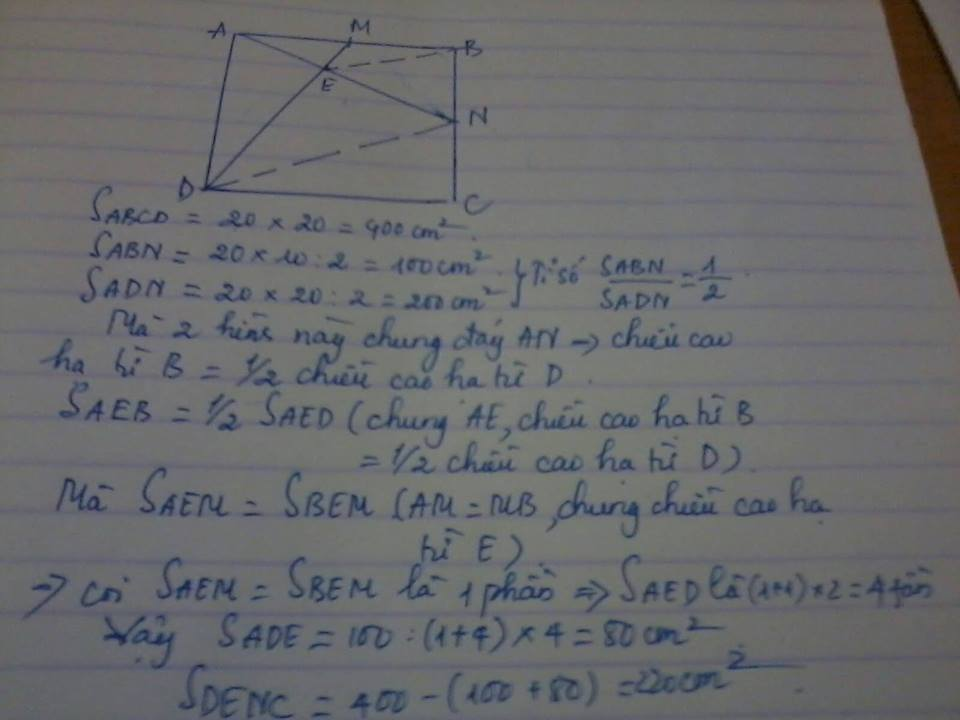 A M B
E
N
D C
SABCD = 20 x 20 = 400 cm².
SABN = 20 x 10 : 2 = 100 cm²
SADN = 20 x 20 : 2 = 200 cm² } Tỉ số SABN/SADN = 1/2
Mà 2 hình này chung đáy AN → chiều cao
hạ từ B = 1/2 chiều cao hạ từ D.
SAEB = 1/2 SAED (chung AE, chiều cao hạ từ B
= 1/2 chiều cao hạ từ D).
Mà SAEM = SBEM (AM = MB, chung chiều cao hạ
từ E)
=> coi SAEM = SBEM là 1 phần => SAED là (1+1) x 2 = 4 phần
Vậy SADE = 100 : (1+4) x 4 = 80 cm²
SDENC = 400 - (100 + 80) = 220 cm².